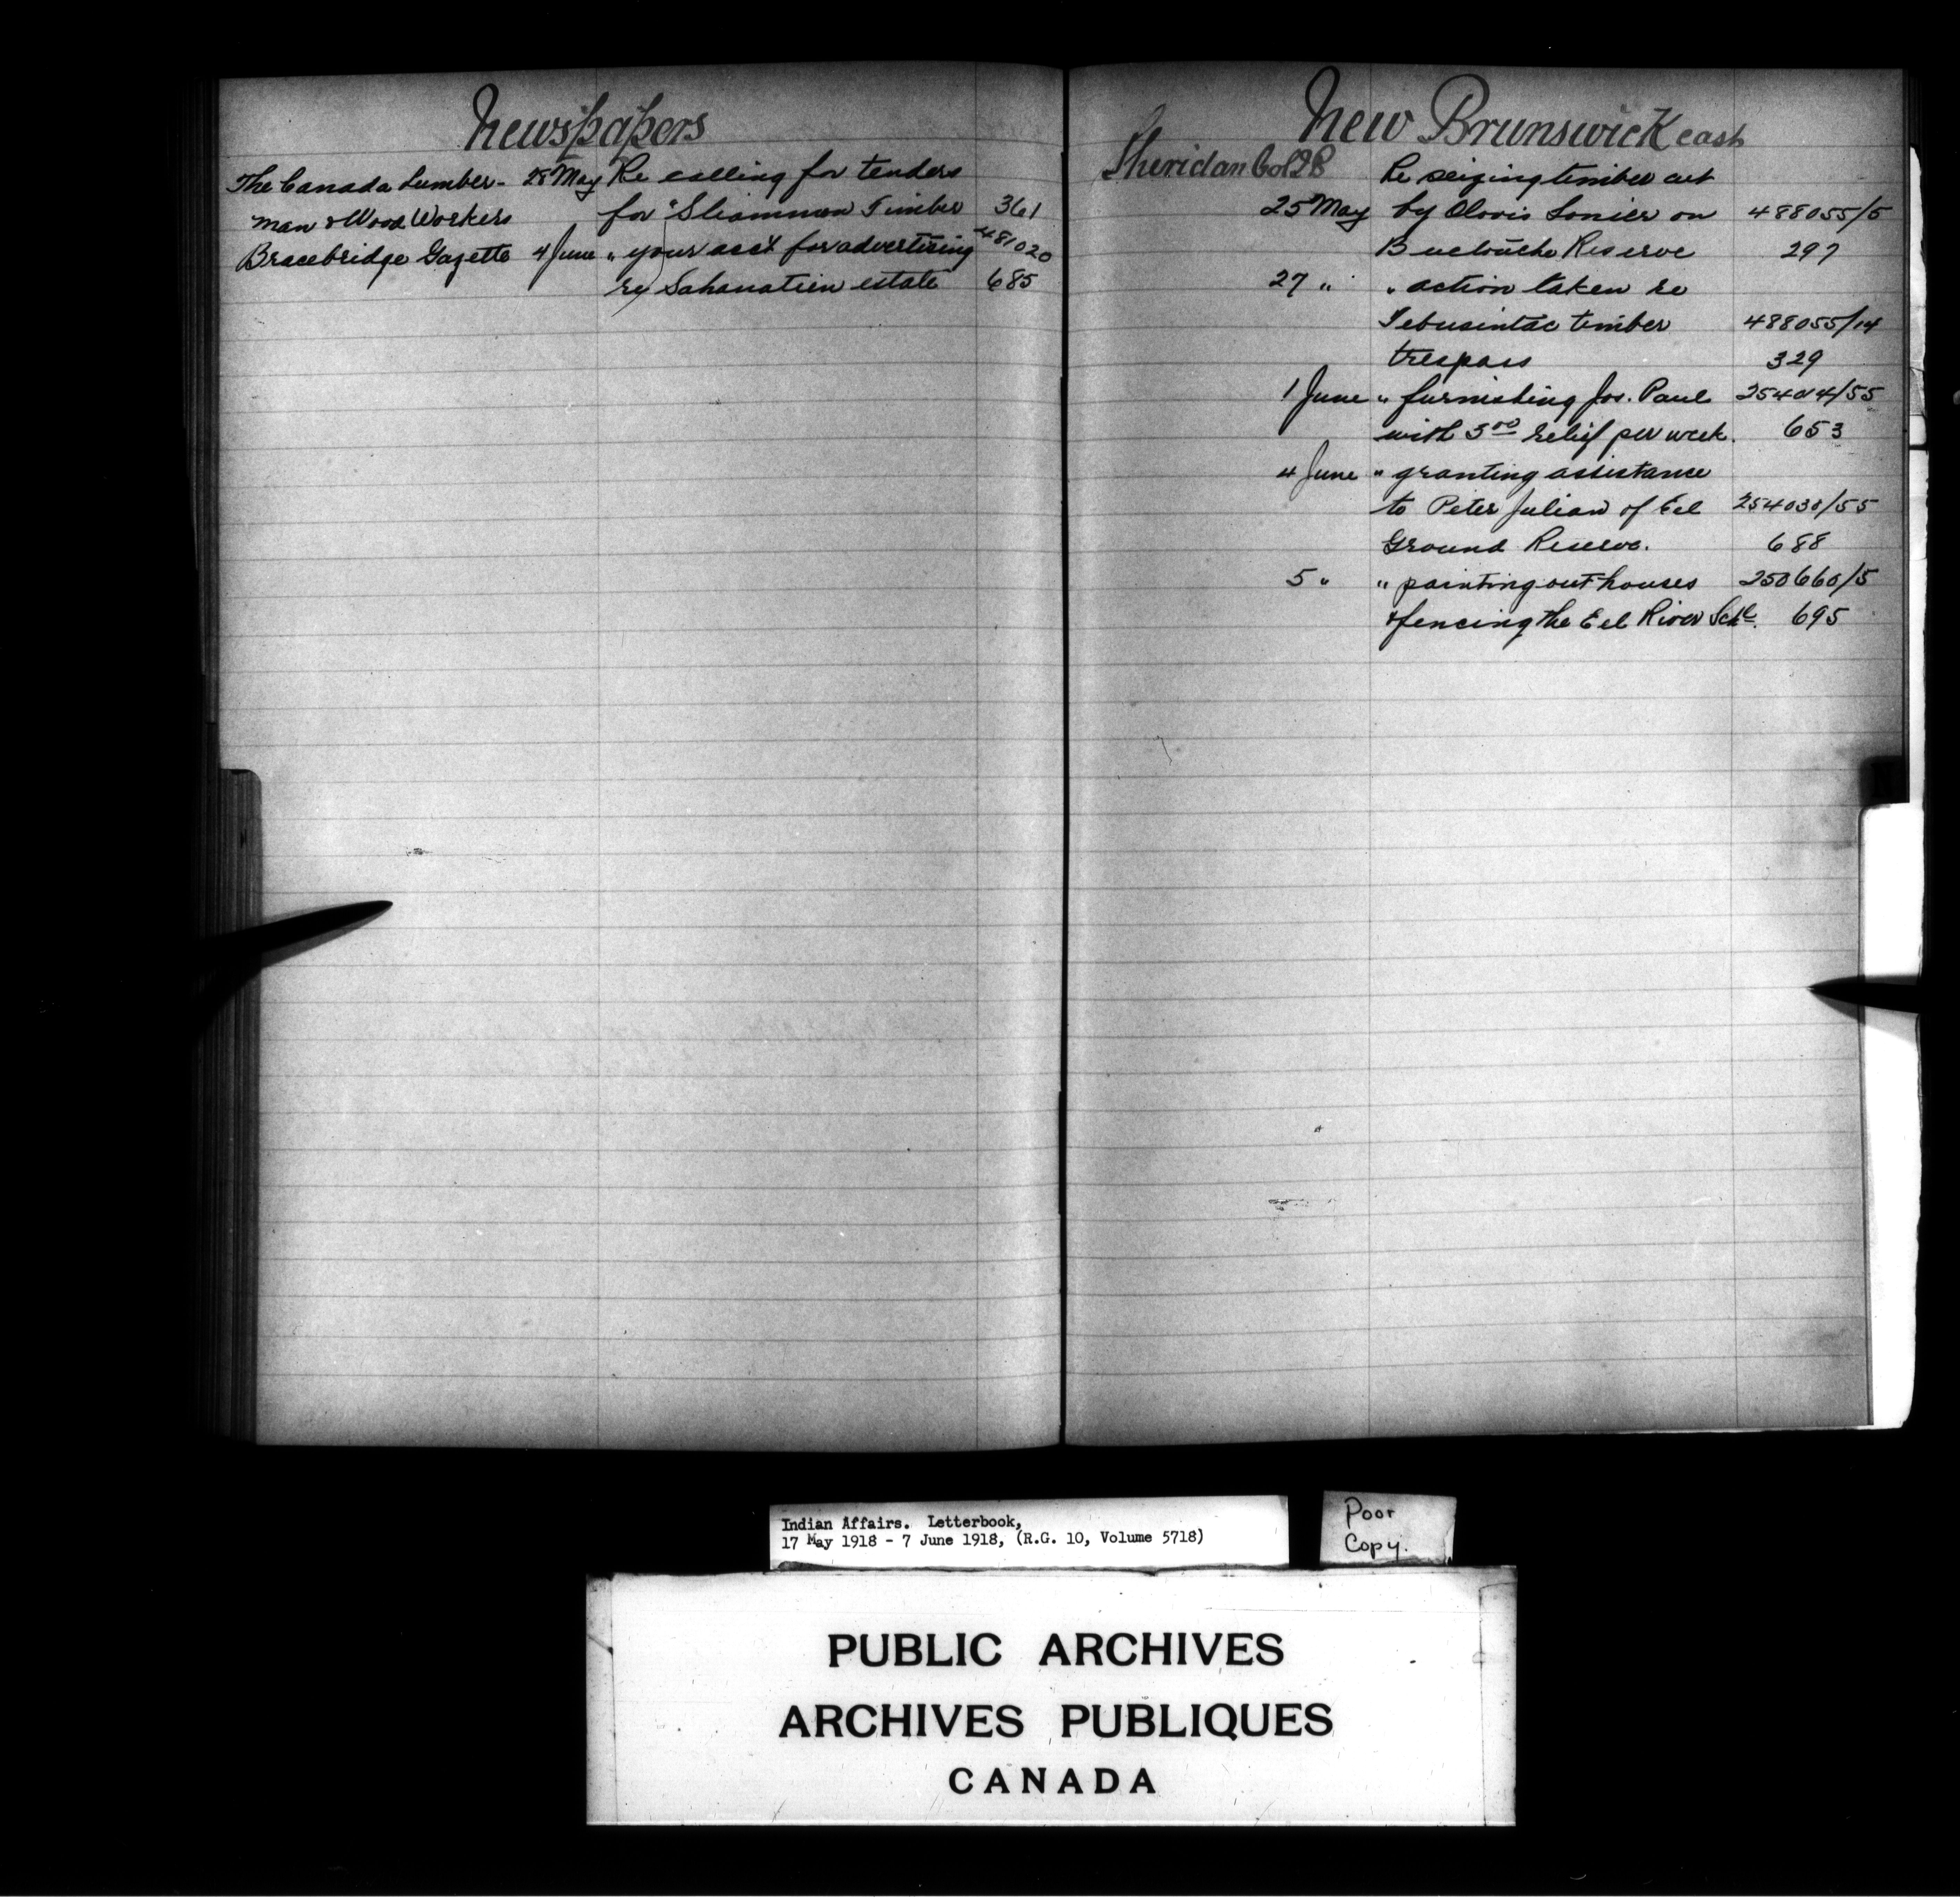 Newspapers
The Canada Lumber- 28 May Re calling for tenders
man & Wood Workers for "Sliammon Timber 361
Bracebridge Gazette 4 June " your acct for advertising 481020
re Sahanatien estate 685
New Brunswick East
Sheridan Col R Re seizing timber cut
25 May by Olovis Sonier on 488055/5
Buctouche Reserve 297
27 " " action taken re
Tebusintac timber 488055/14
trespass 329
1 June " furnishing Jos. Paul 254044/55
with 3.00 relief per week. 653
4 June " granting assistance
to Peter Julian of Eel 254030/55
Ground Reserve. 688
5 " " painting outhouses 250660/5
& fencing the Eel River Schl. 695
Indian Affairs. Letterbook,
17 May 1918 - 7 June 1918, (R.G. 10, Volume 5718)
Poor
Copy.
PUBLIC ARCHIVES
ARCHIVES PUBLIQUES
CANADA